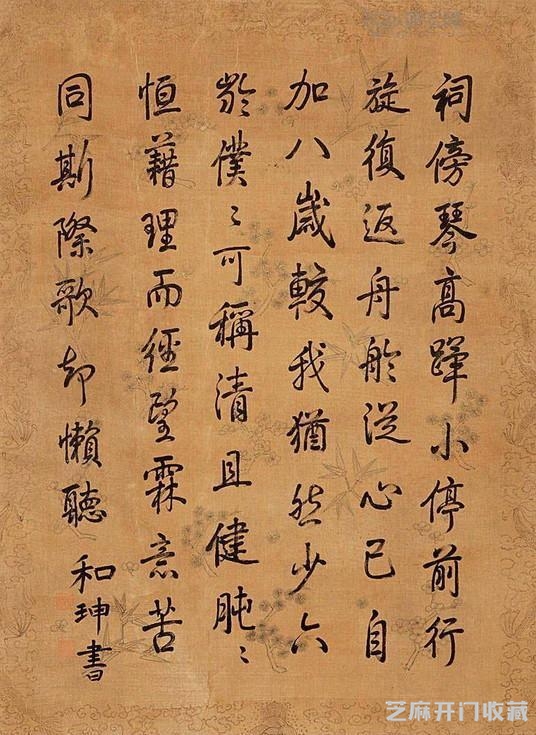 祠傍琴高蹕小停前行
旋復返舟舲從心已自
加八歲較我猶然少六
齡僕〻可稱清且健肫〻
恒藉理而經望霖意苦
同斯際歌却懶聽
和珅書
芝麻开门收藏